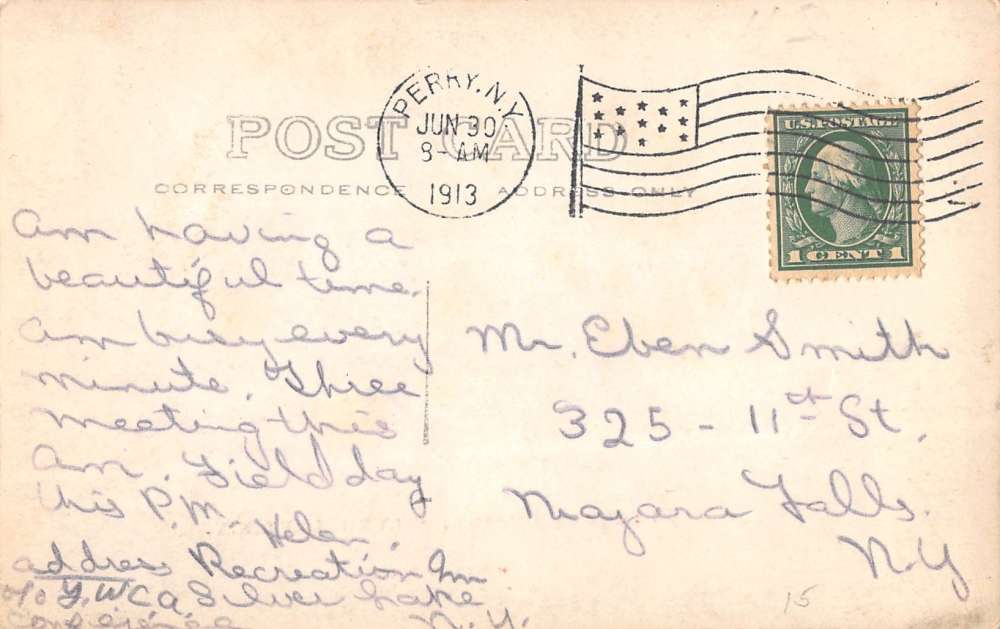 POST CARD
CORRESPONDENCE ADDRESS ONLY
PERRY, N.Y.
JUN 30
8-AM
1913
U.S. POSTAGE
1 CENT 1
Am having a
beautiful time.
Am busy every
minute. Three
meeting this
am. Field day
this P.M.
Helen.
address Recreation Inn
c/o Y.W.C.A. Silver Lake
Conference N.Y.
Mr. Eben Smith
325 - 11th St.
Niagara Falls.
N.Y
15